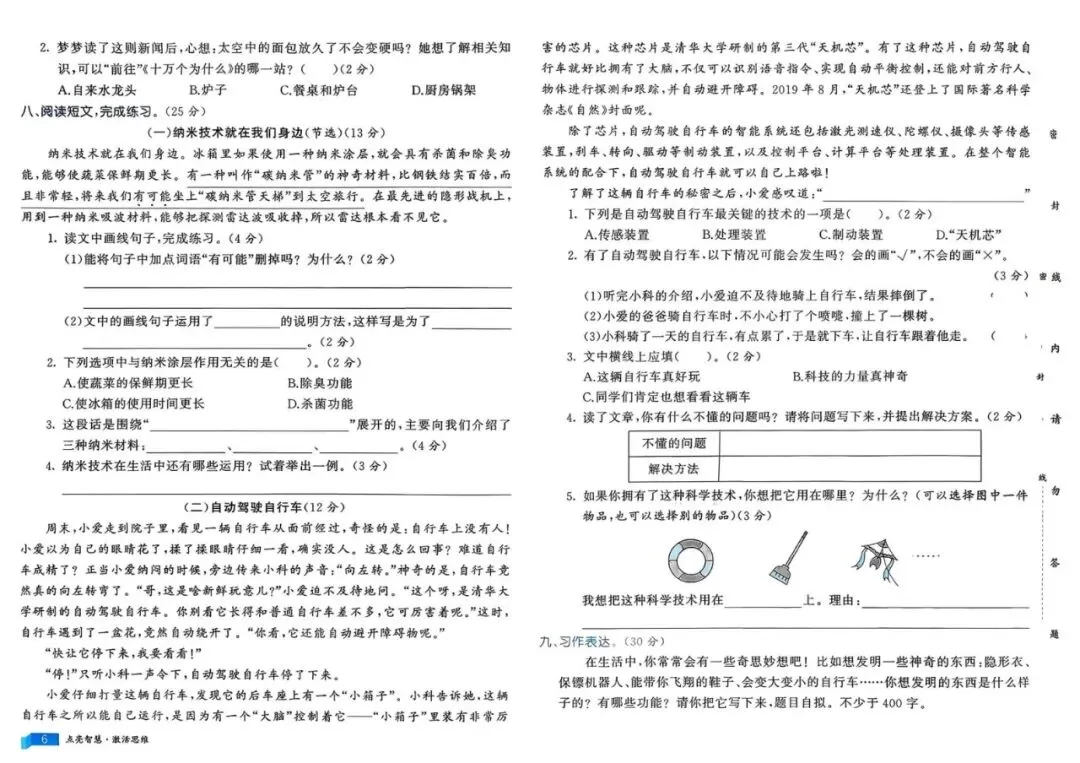 2. 梦梦读了这则新闻后,心想:太空中的面包放久了不会变硬吗? 她想了解相关知
识,可以“前往”《十万个为什么》的哪一站? (　　)(2分)
A.自来水龙头　B.炉子　C.餐桌和炉台　D.厨房锅架
八、阅读短文,完成练习。(25分)
(一)纳米技术就在我们身边(节选)(13分)
纳米技术就在我们身边。冰箱里如果使用一种纳米涂层,就会具有杀菌和除臭功
能,能够使蔬菜保鲜期更长。有一种叫作“碳纳米管”的神奇材料,比钢铁结实百倍,而
且非常轻,将来我们有可能坐上“碳纳米管天梯”到太空旅行。在最先进的隐形战机上,
用到一种纳米吸波材料,能够把探测雷达波吸收掉,所以雷达根本看不见它。
1. 读文中画线句子,完成练习。(4分)
(1)能将句子中加点词语“有可能”删掉吗? 为什么?(2分)
(2)文中的画线句子运用了________的说明方法,这样写是为了________
________。(2分)
2. 下列选项中与纳米涂层作用无关的是(　　)。(2分)
A.使蔬菜的保鲜期更长　B.除臭功能
C.使冰箱的使用时间更长　D.杀菌功能
3. 这段话是围绕“________”展开的,主要向我们介绍了
三种纳米材料:________、________、________。(4分)
4. 纳米技术在生活中还有哪些运用? 试着举出一例。(3分)
(二)自动驾驶自行车(12分)
周末,小爱走到院子里,看见一辆自行车从面前经过,奇怪的是:自行车上没有人!
小爱以为自己的眼睛花了,揉了揉眼睛仔细一看,确实没人。这是怎么回事? 难道自行
车成精了? 正当小爱纳闷的时候,旁边传来小科的声音:“向左转。”神奇的是,自行车竟
然真的向左转弯了。“哥,这是啥新鲜玩意儿?”小爱迫不及待地问。“这个呀,是清华大
学研制的自动驾驶自行车。你别看它长得和普通自行车差不多,它可厉害着呢。”这时,
自行车遇到了一盆花,竟然自动绕开了。“你看,它还能自动避开障碍物呢。”
“快让它停下来,我要看看!”
“停!”只听小科一声令下,自动驾驶自行车停了下来。
小爱仔细打量这辆自行车,发现它的后车座上有一个“小箱子”。小科告诉她,这辆
自行车之所以能自己运行,是因为有一个“大脑”控制着它——“小箱子”里装有非常厉
6 点亮智慧·激活思维
害的芯片。这种芯片是清华大学研制的第三代“天机芯”。有了这种芯片,自动驾驶自
行车就好比拥有了大脑,不仅可以识别语音指令、实现自动平衡控制,还能对前方行人、
物体进行探测和跟踪,并自动避开障碍。2019年8月,“天机芯”还登上了国际著名科学
杂志《自然》封面呢。
除了芯片,自动驾驶自行车的智能系统还包括激光测速仪、陀螺仪、摄像头等传感
装置,刹车、转向、驱动等制动装置,以及控制平台、计算平台等处理装置。在整个智能
系统的配合下,自动驾驶自行车就可以自己上路啦!
了解了这辆自行车的秘密之后,小爱感叹道:“________”
1. 下列是自动驾驶自行车最关键的技术的一项是(　　)。(2分)
A.传感装置　B.处理装置　C.制动装置　D.“天机芯”
2. 有了自动驾驶自行车,以下情况可能会发生吗? 会的画“√”,不会的画“×”。
(3分)
(1)听完小科的介绍,小爱迫不及待地骑上自行车,结果摔倒了。 (　　)
(2)小爱的爸爸骑自行车时,不小心打了个喷嚏,撞上了一棵树。
(3)小科骑了一天的自行车,有点累了,于是就下车,让自行车跟着他走。 (　　)
3. 文中横线上应填(　　)。(2分)
A.这辆自行车真好玩　B.科技的力量真神奇
C.同学们肯定也想看看这辆车
4. 读了文章,你有什么不懂的问题吗? 请将问题写下来,并提出解决方案。(2分)
不懂的问题
解决方法
5. 如果你拥有了这种科学技术,你想把它用在哪里? 为什么?(可以选择图中一件
物品,也可以选择别的物品)(3分)
……
我想把这种科学技术用在________上。理由:________
九、习作表达。(30分)
在生活中,你常常会有一些奇思妙想吧! 比如想发明一些神奇的东西:隐形衣、
保镖机器人、能带你飞翔的鞋子、会变大变小的自行车……你想发明的东西是什么样
子的? 有哪些功能? 请你把它写下来,题目自拟。不少于400字。
密
封
线
内
请
勿
答
题
密
封
线